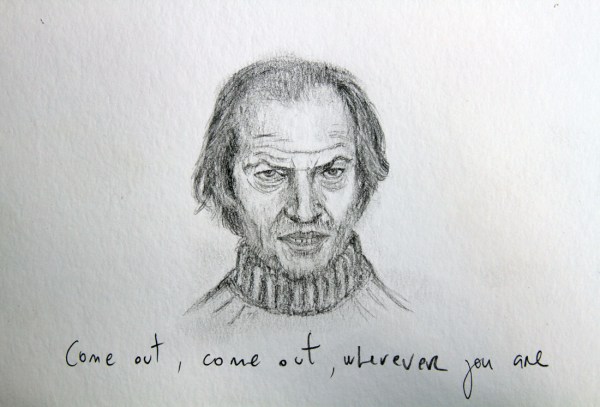 Come out, come out, wherever you are